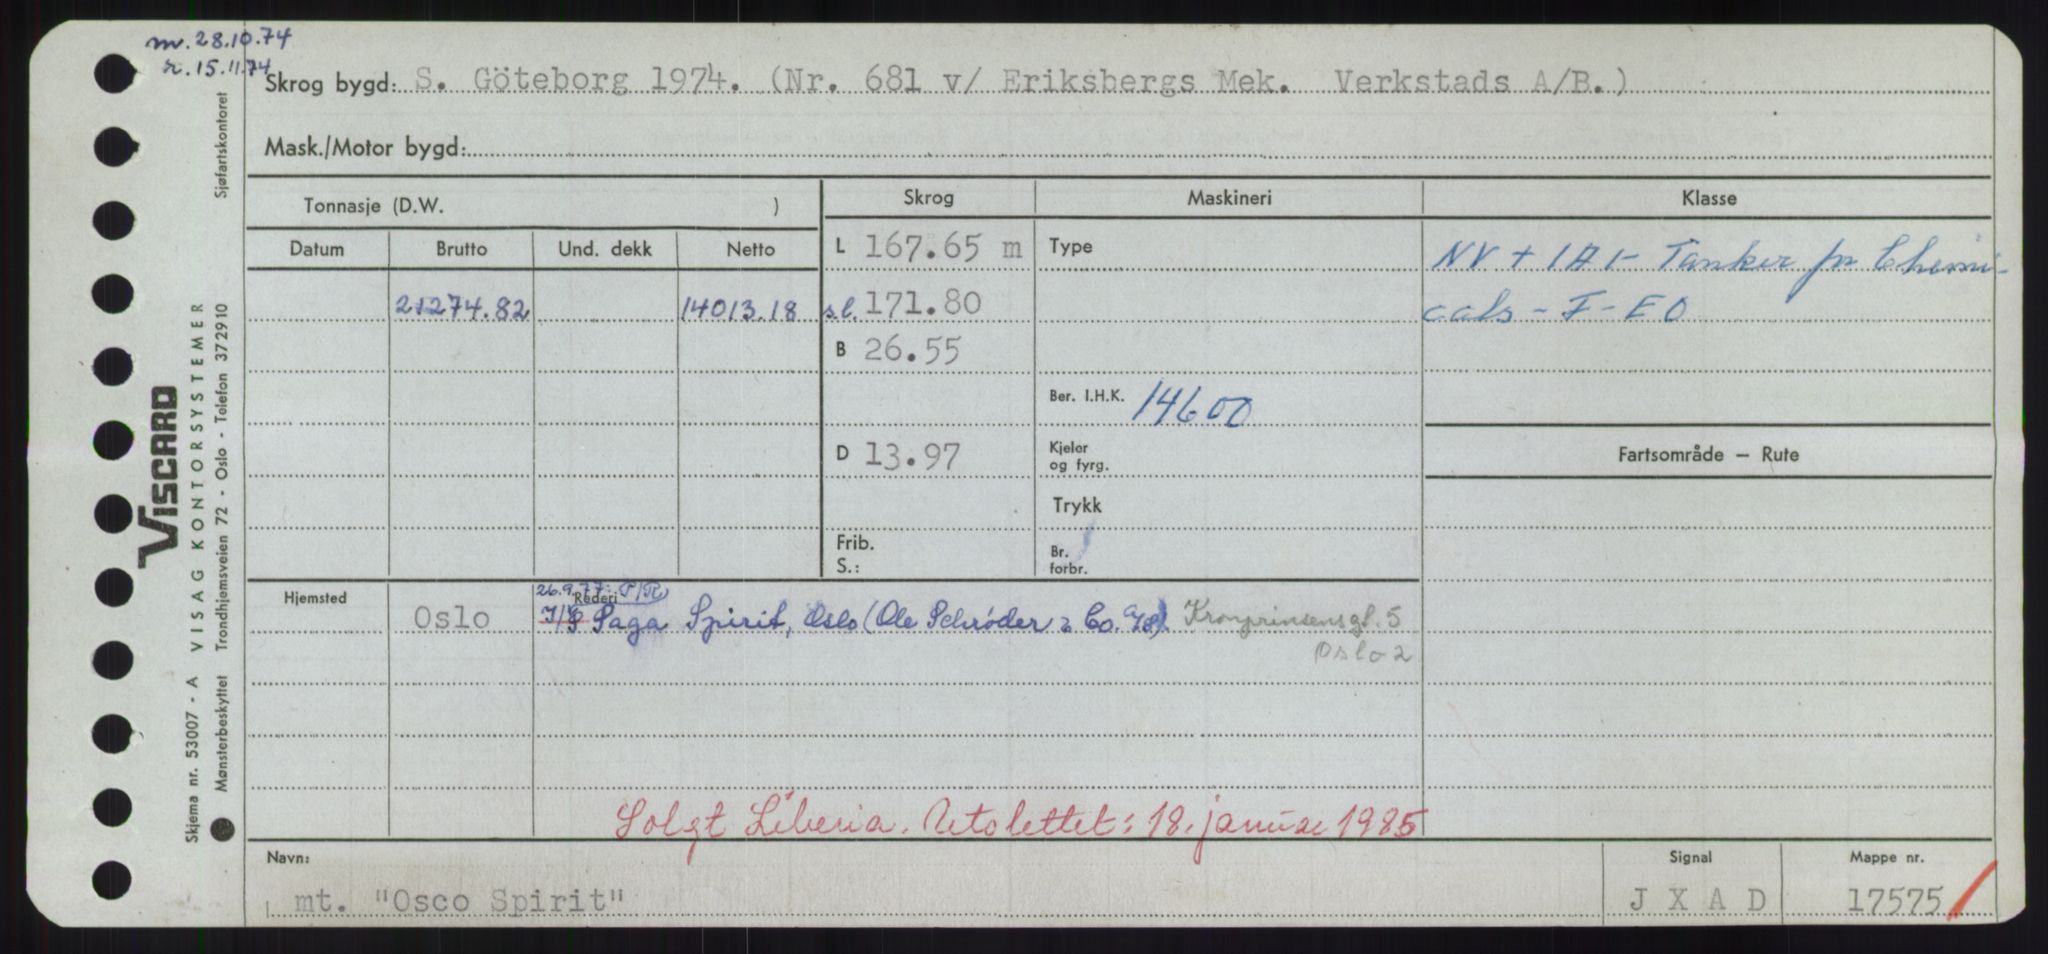 m. 28.10.74
r. 15.11.74
Skrog bygd: S. Göteborg 1974. (Nr. 681 v/ Eriksbergs Mek. Verkstads A/B.)
Mask./Motor bygd:
Tonnasje (D.W. )
Skrog
Maskineri
Klasse
Datum Brutto Und. dekk Netto
L 167.65 m
Type
NV + 1A1- Tanker for Chemi-
21274.82 14013.18
s.l. 171.80
cals - F - EO
B 26.55
Ber. I.H.K. 14600
D 13.97
Kjeler
og fyrg.
Fartsområde – Rute
Trykk
Frib.
S.:
Br.
forbr.
Hjemsted
Oslo
26.9.77: P/R
Rederi
I/S Saga Spirit, Oslo (Ole Schrøder & Co. A/S) Kronprinsensgt. 5
Oslo 2
Solgt Liberia. Utslettet: 18. januar 1985
Navn:
mt. "Osco Spirit"
Signal
J X A D
Mappe nr.
17575
Sjøfartskontoret
VISCARD
VISAG KONTORSYSTEMER
Trondhjemsveien 72 - Oslo - Telefon 372910
Skjema nr. 53007 - A
Mønsterbeskyttet